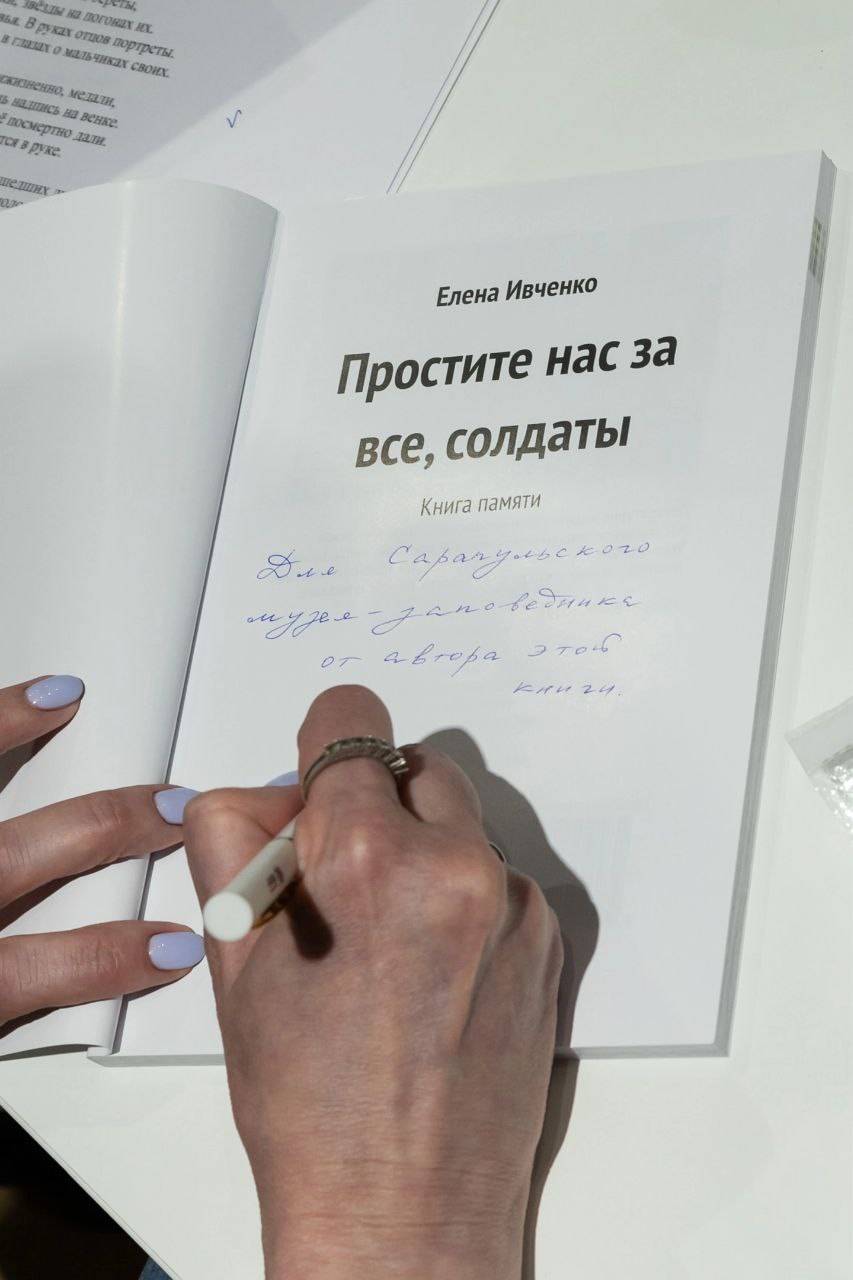 звёзды на погонах их.
В руках отцов портреты.
в глазах о мальчиках своих.
медали,
надпись на венке.
посмертно дали.
в руке.
Елена Ивченко
Простите нас за
все, солдаты
Книга памяти
Для Сарапульского
музея-заповедника
от автора этой
книги.